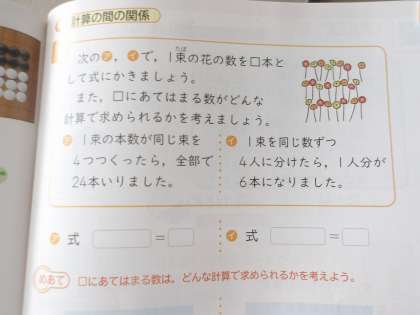 計算の間の関係
次の㋐，㋑で，1束の花の数を□本と
して式にかきましょう。
また，□にあてはまる数がどんな
計算で求められるかを考えましょう。
㋐ 1束の本数が同じ束を
4つつくったら，全部で
24本いりました。
㋑ 1束を同じ数ずつ
4人に分けたら，1人分が
6本になりました。
㋐ 式 □＝□
㋑ 式 □＝□
めあて □にあてはまる数は，どんな計算で求められるかを考えよう。